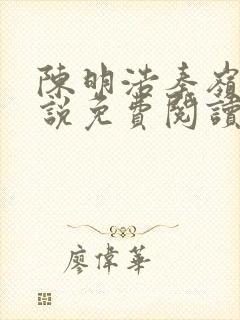 陳明浩秦嶺
說免費閱讀
廖偉華